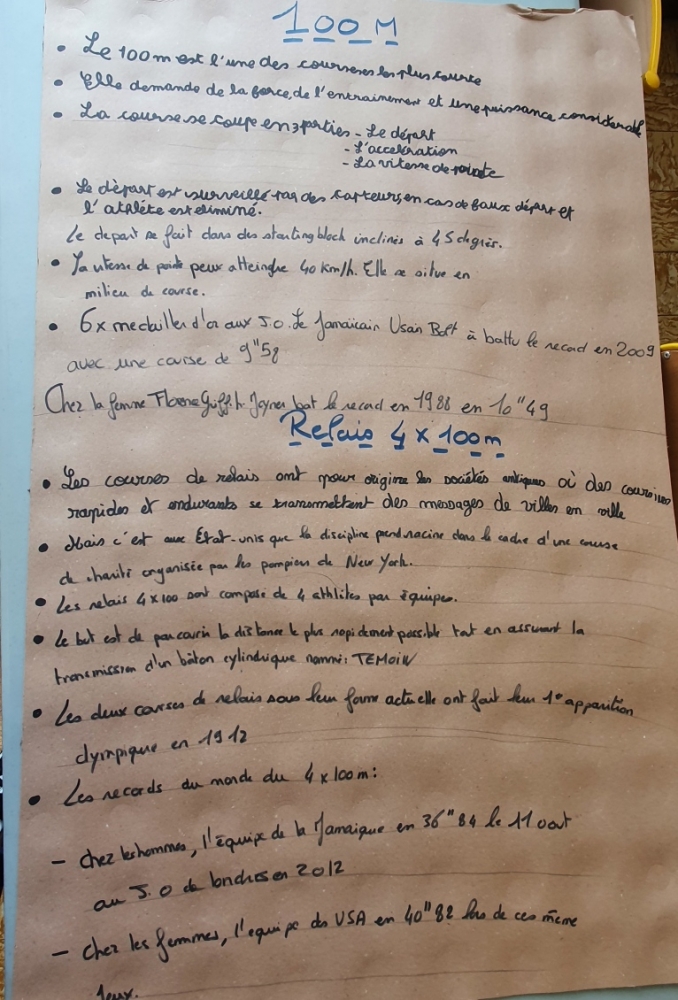 100 M
• Le 100 m est l'une des courseses les plus courte
• Elle demande de la force, de l'entrainement et une puissance considerable
• La course se coupe en 3 parties - Le départ
- L'accelération
- La vitesse de pointe
• Le dèpart est surveillé par des capteurs, en cas de faux départ et
l'athléte est eliminé.
Le depart se fait dans des starting block inclinés à 45 degrés.
• La vitesse de pointe peux atteingre 40 km/h. Elle se situe en
milieu de course.
• 6x medailler d'or aux J.O. Le Jamaïcain Usain Bolt à battu le record en 2009
avec une course de 9"58
Chez la femme Florence Griffith Joyner bat le record en 1988 en 10"49
Relais 4 x 100 m
• Les courses de relais ont pour origine les sociétés antiques où des
rapides et endurants se transmettent des messages de villes en ville
• Mais c'est aux État-unis que la discipline prend racine dans le cadre d'une course
de charité organisée par les pompiers de New York.
• Les relais 4x100 sont composé de 4 athlètes par équipes.
• Le but est de parcourir la distance le plus rapidement possible tout en assurant la
transmission d'un bâton cylindrique nommé : TEMOIN
• Les deux courses de relais sous leur forme actuelle ont fait leur 1e apparition
olympique en 1912
• Les records du monde du 4 x 100 m :
- chez les hommes, l'équipe de la Jamaique en 36"84 le 11 aout
au J.O de londres en 2012
- chez les femmes, l'equipe des USA en 40"82 lors de ces même
Jeux.